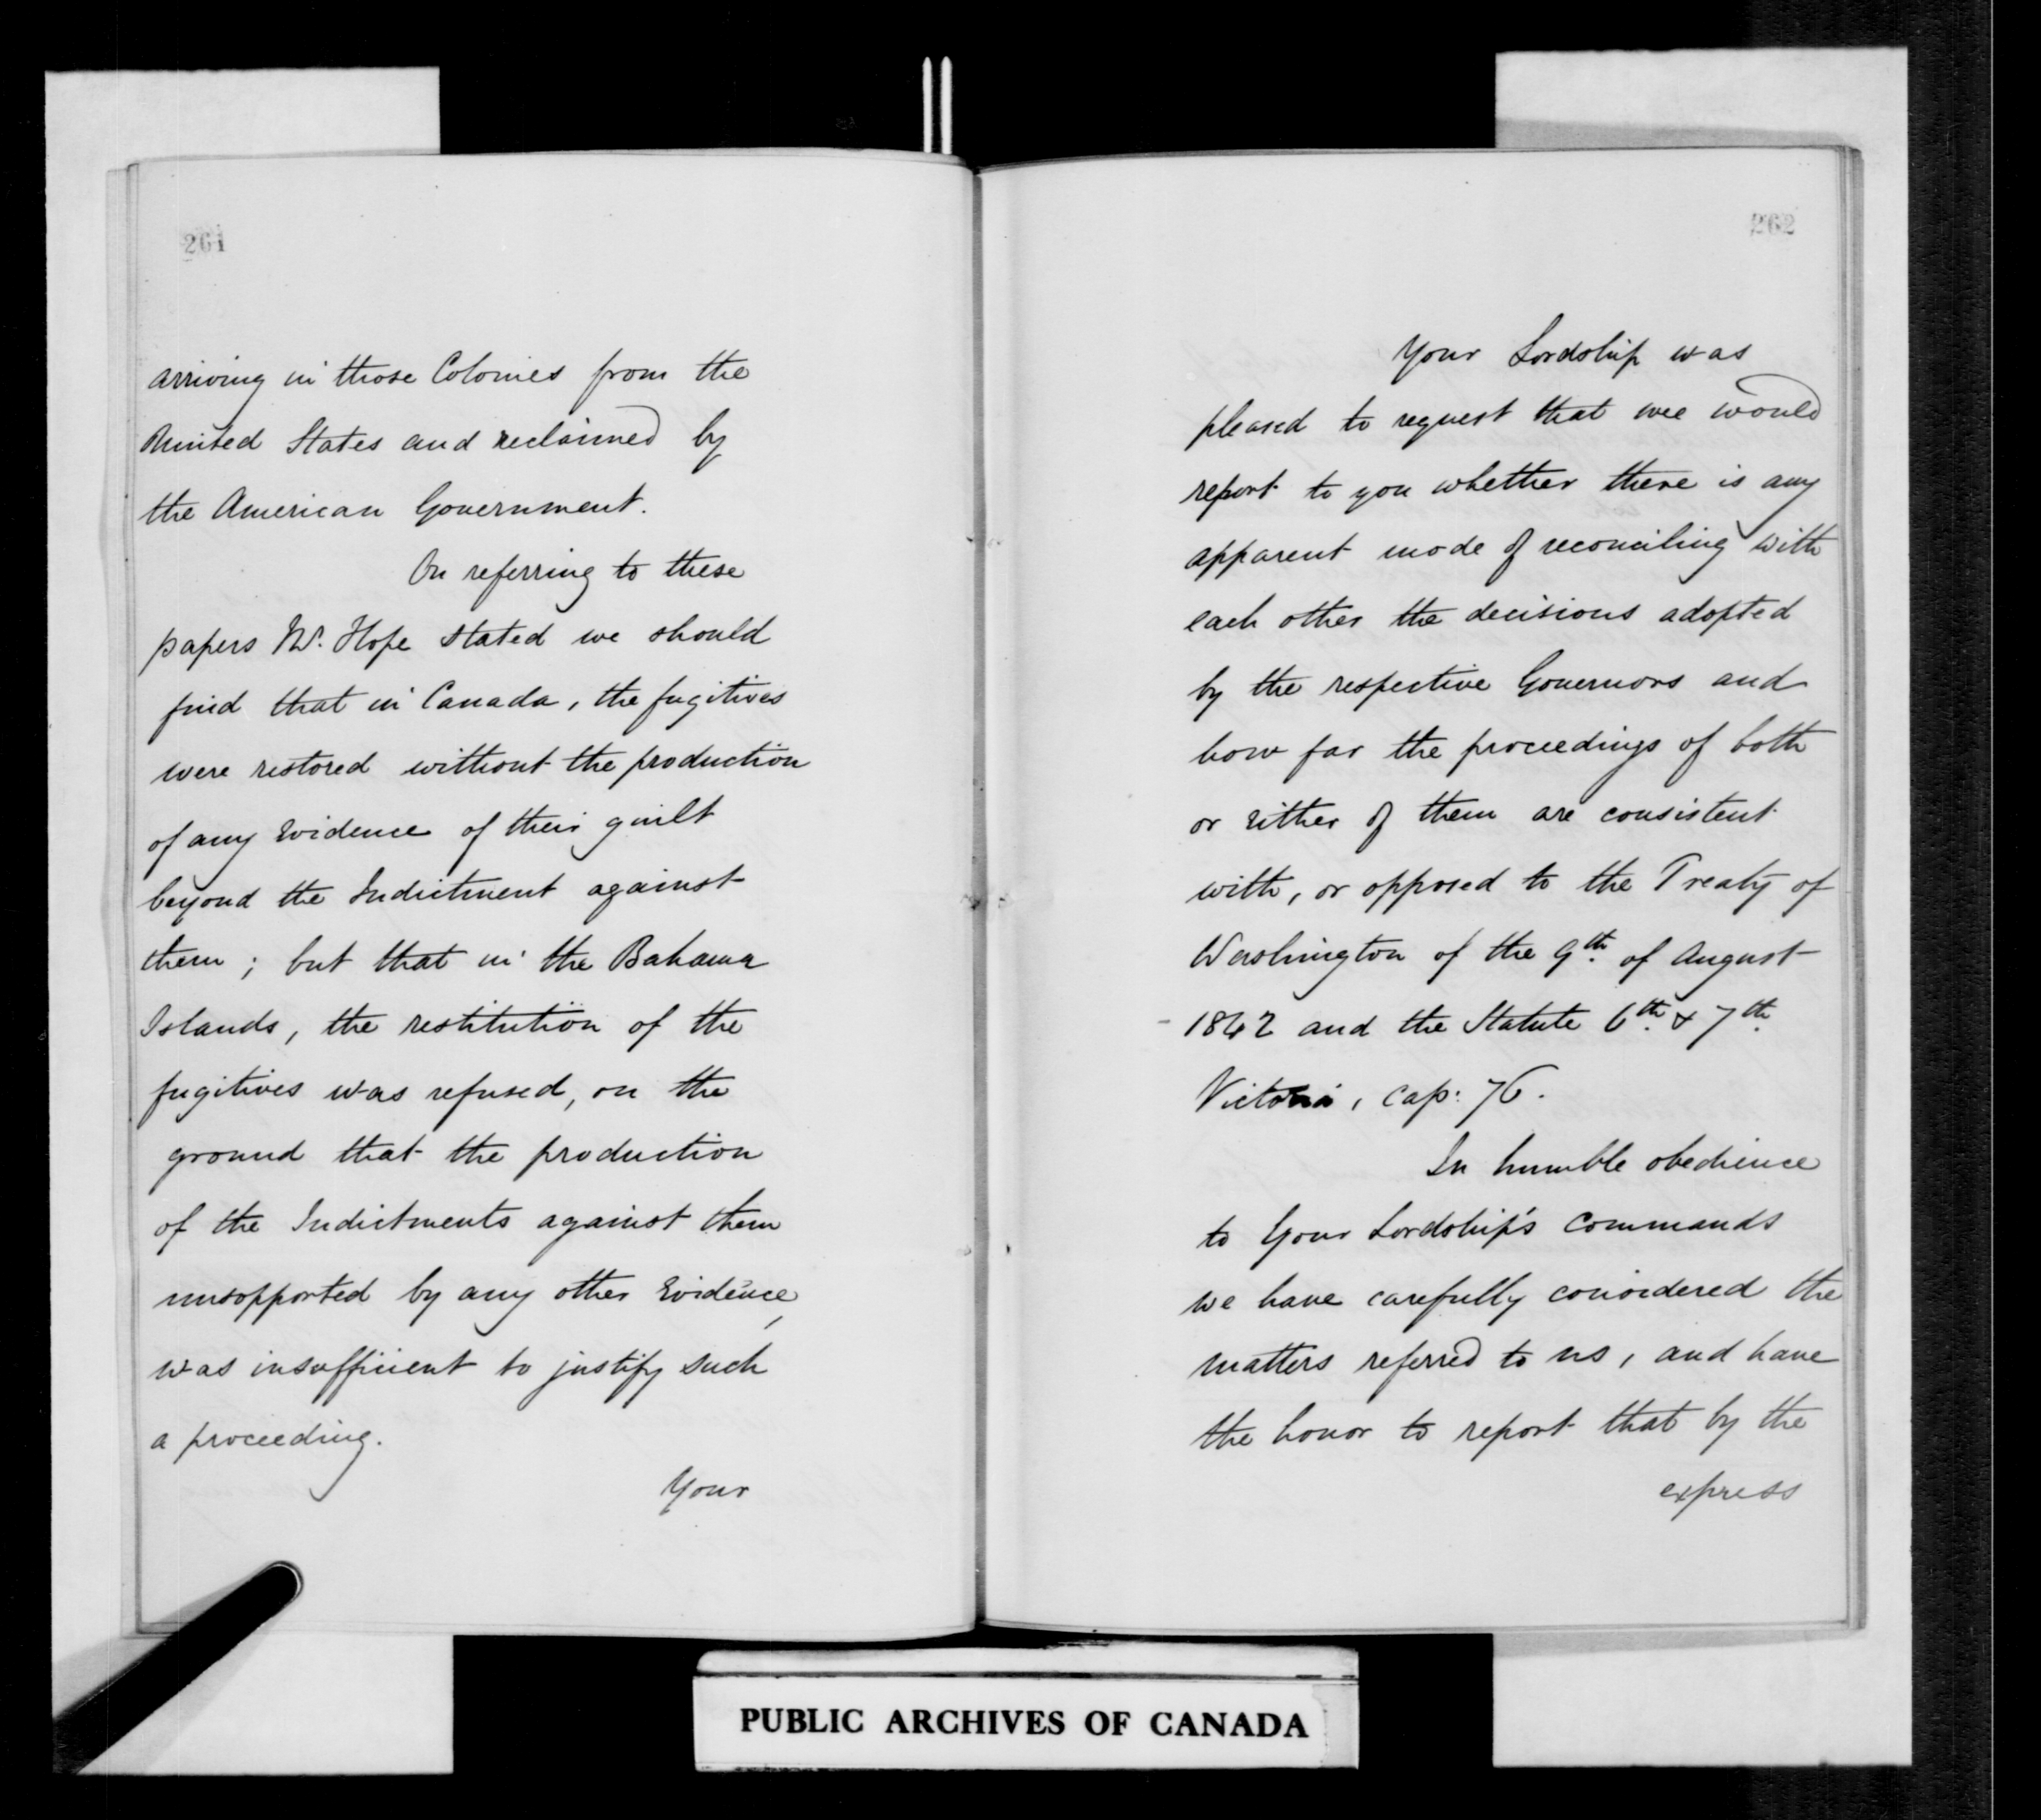 261
arriving in those Colonies from the
United States and reclaimed by
the American Government.
On referring to these
papers Mr. Hope stated we should
find that in Canada, the fugitives
were restored without the production
of any Evidence of their guilt
beyond the Indictment against
them; but that in the Bahama
Islands, the restitution of the
fugitives was refused, on the
ground that the production
of the Indictments against them
unsopported by any other Evidence,
was insofficient to justify such
a proceeding.
Your
262
Your Lordship was
pleased to request that wee would
report to you whether there is any
apparent mode of reconciling with
each other the decisions adopted
by the respective Governors and
how far the proceedings of both
or either of them are consistent
with, or opposed to the Treaty of
Washington of the 9th. of August
1842 and the Statute 6th. & 7th.
Victoria, cap: 76.
In humble obedience
to Your Lordship's commands
we have carefully considered the
matters referred to us, and have
the honor to report that by the
express
PUBLIC ARCHIVES OF CANADA